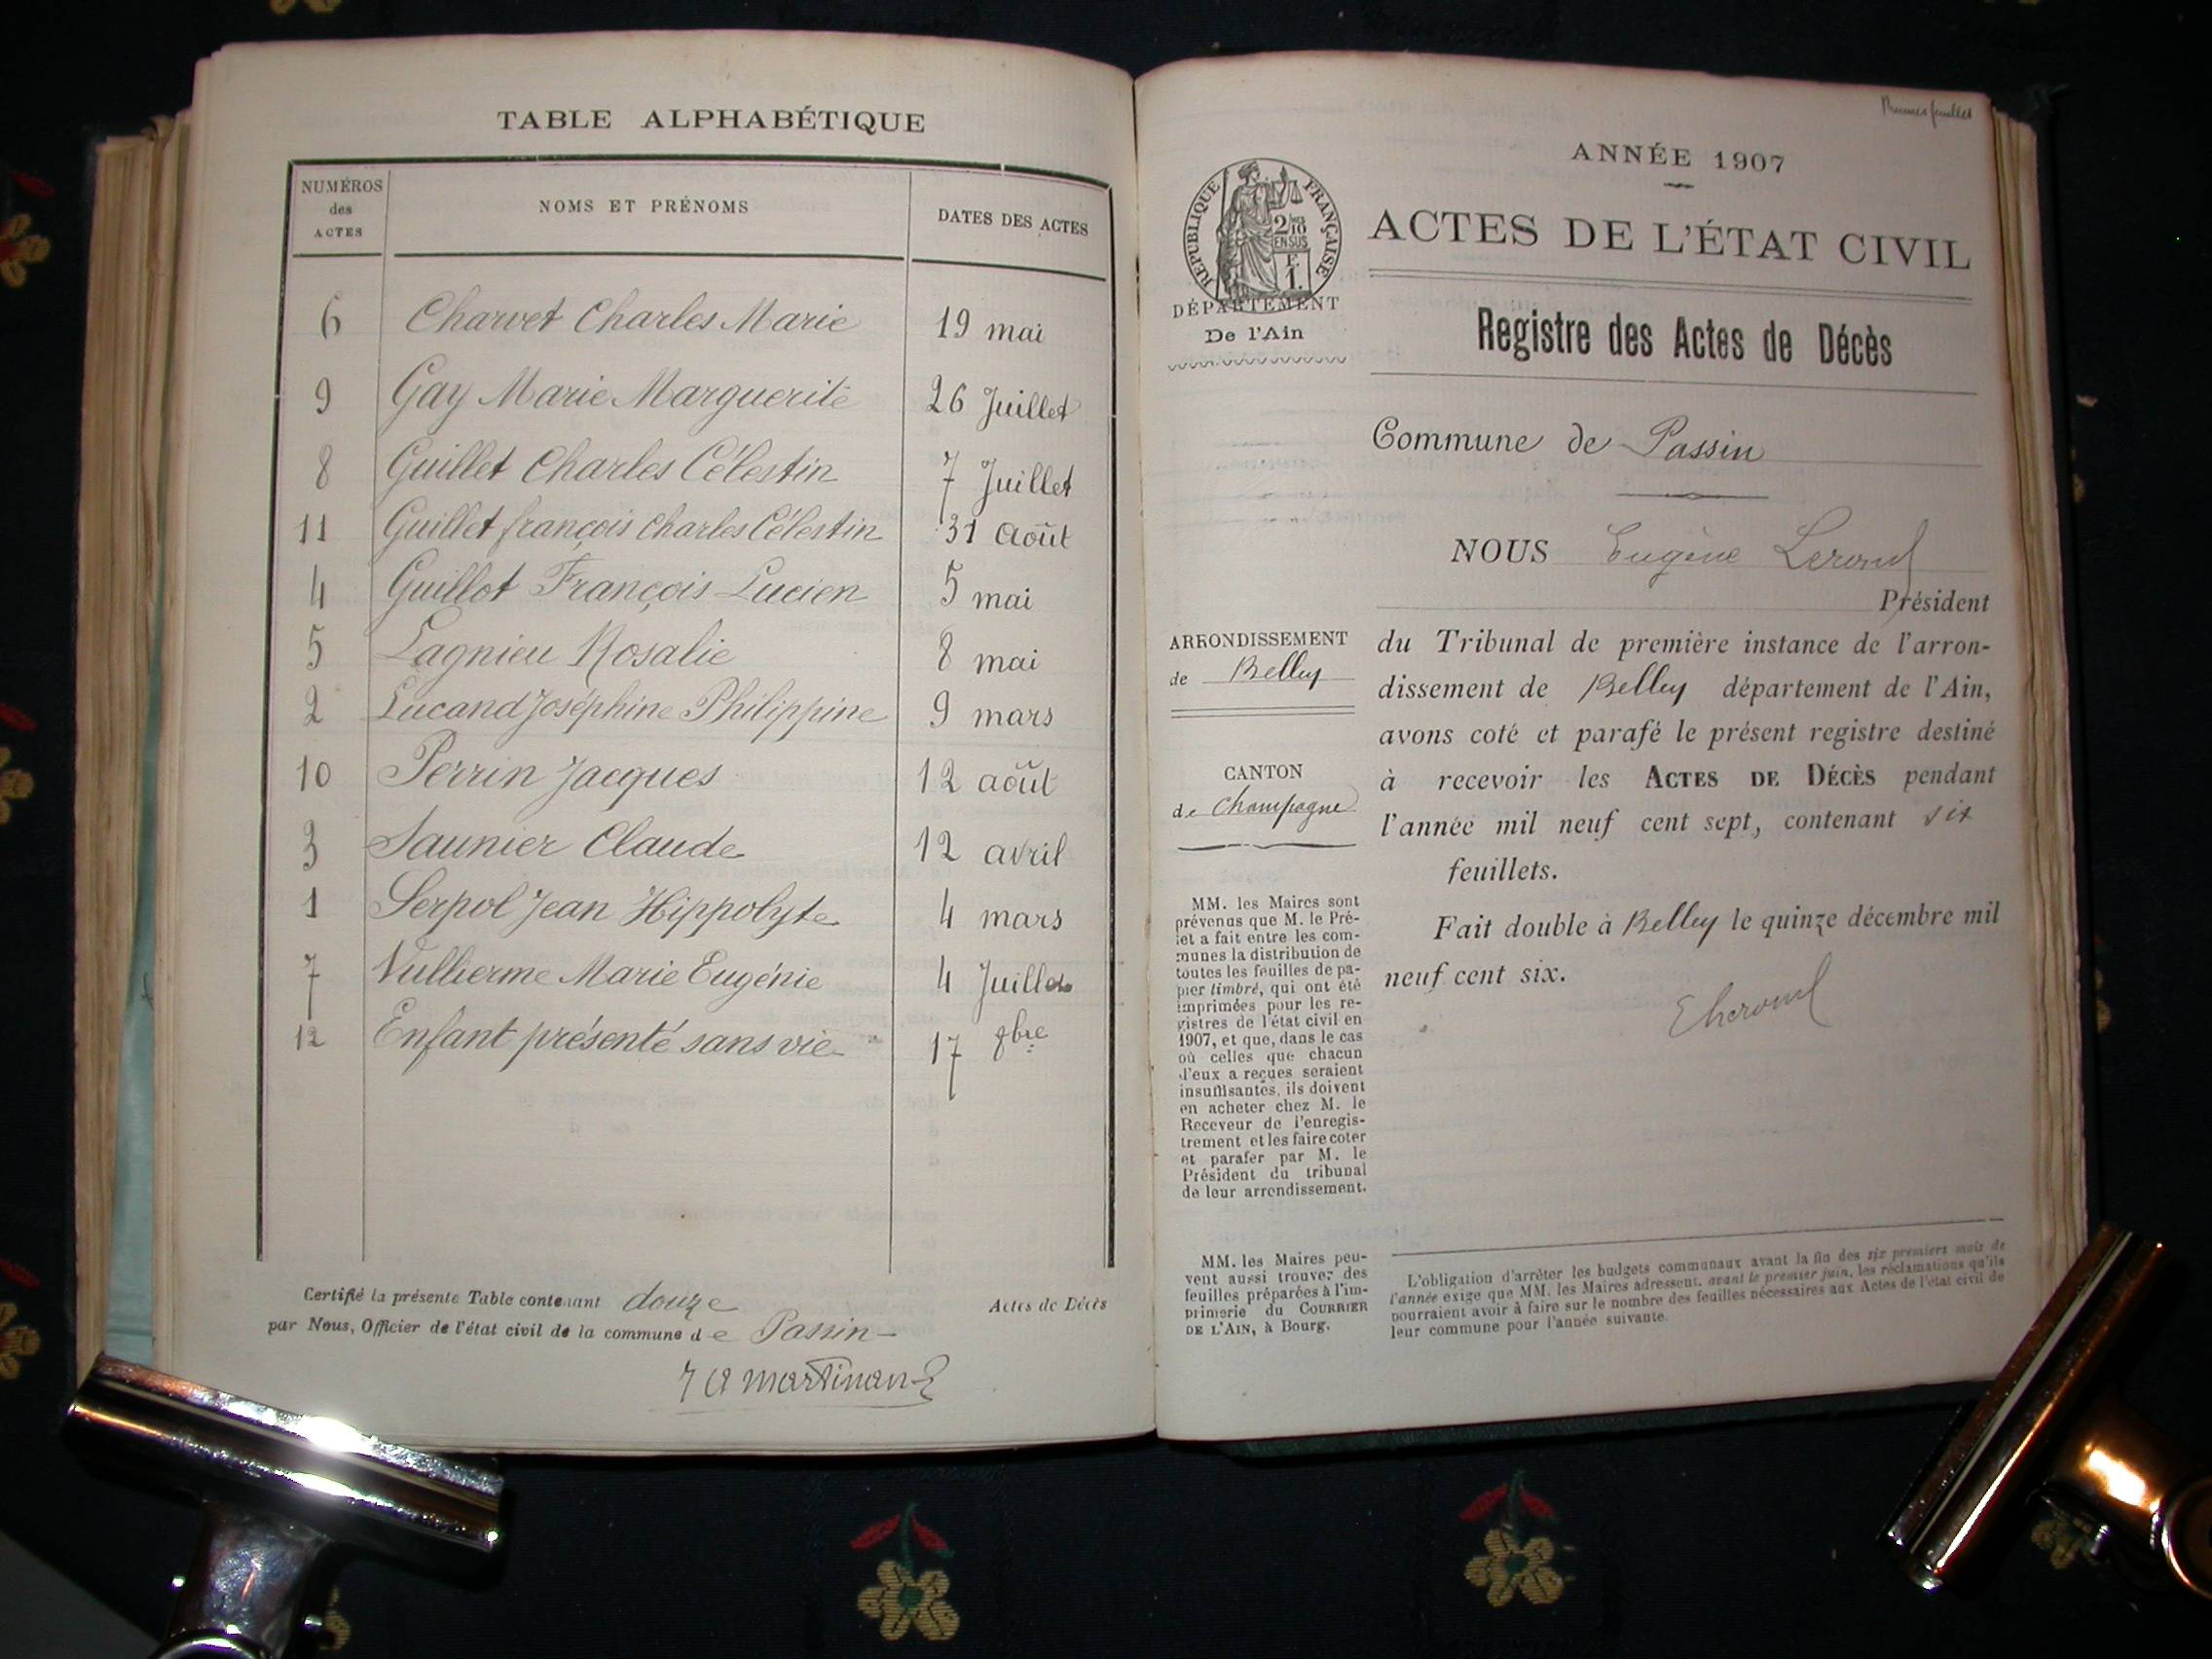 TABLE ALPHABÉTIQUE
NUMÉROS
des
ACTES
NOMS ET PRÉNOMS
DATES DES ACTES
6 Charvet Charles Marie 19 mai
9 Gay Marie Marguerite 26 Juillet
8 Guillet Charles Célestin 7 Juillet
11 Guillet françois Charles Célestin 31 Août
4 Guillot François Lucien 5 mai
5 Lagnieu Rosalie 8 mai
2 Lucand Joséphine Philippine 9 mars
10 Perrin Jacques 12 août
3 Saunier Claude 12 avril
1 Serpol Jean Hippolyte 4 mars
7 Vullierme Marie Eugénie 4 Juillet
12 Enfant présenté sans vie 17 8bre
Certifié la présente Table contenant douze Actes de Décès
par Nous, Officier de l'état civil de la commune de Passin
ANNÉE 1907
RÉPUBLIQUE FRANÇAISE
2/10
EN SUS
F.
1.
DÉPARTEMENT
De l'Ain
ACTES DE L'ÉTAT CIVIL
Registre des Actes de Décès
Commune de Passin
NOUS Eugène
Président
ARRONDISSEMENT
de Belley
CANTON
de Champagne
du Tribunal de première instance de l'arron-
dissement de Belley département de l'Ain,
avons coté et parafé le présent registre destiné
à recevoir les ACTES DE DÉCÈS pendant
l'année mil neuf cent sept, contenant six
feuillets.
Fait double à Belley le quinze décembre mil
neuf cent six.
MM. les Maires sont
prévenus que M. le Pré-
fet a fait entre les com-
munes la distribution de
toutes les feuilles de pa-
pier timbré, qui ont été
imprimées pour les re-
gistres de l'état civil en
1907, et que, dans le cas
où celles que chacun
d'eux a reçues seraient
insuffisantes, ils doivent
en acheter chez M. le
Receveur de l'enregis-
trement et les faire coter
et parafer par M. le
Président du tribunal
de leur arrondissement.
MM. les Maires peu-
vent aussi trouver des
feuilles préparées à l'im-
primerie du COURRIER
DE L'AIN, à Bourg.
L'obligation d'arrêter les budgets communaux avant la fin des six premiers mois de
l'année exige que MM. les Maires adressent, avant le premier juin, les réclamations qu'ils
pourraient avoir à faire sur le nombre des feuilles nécessaires aux Actes de l'état civil de
leur commune pour l'année suivante.